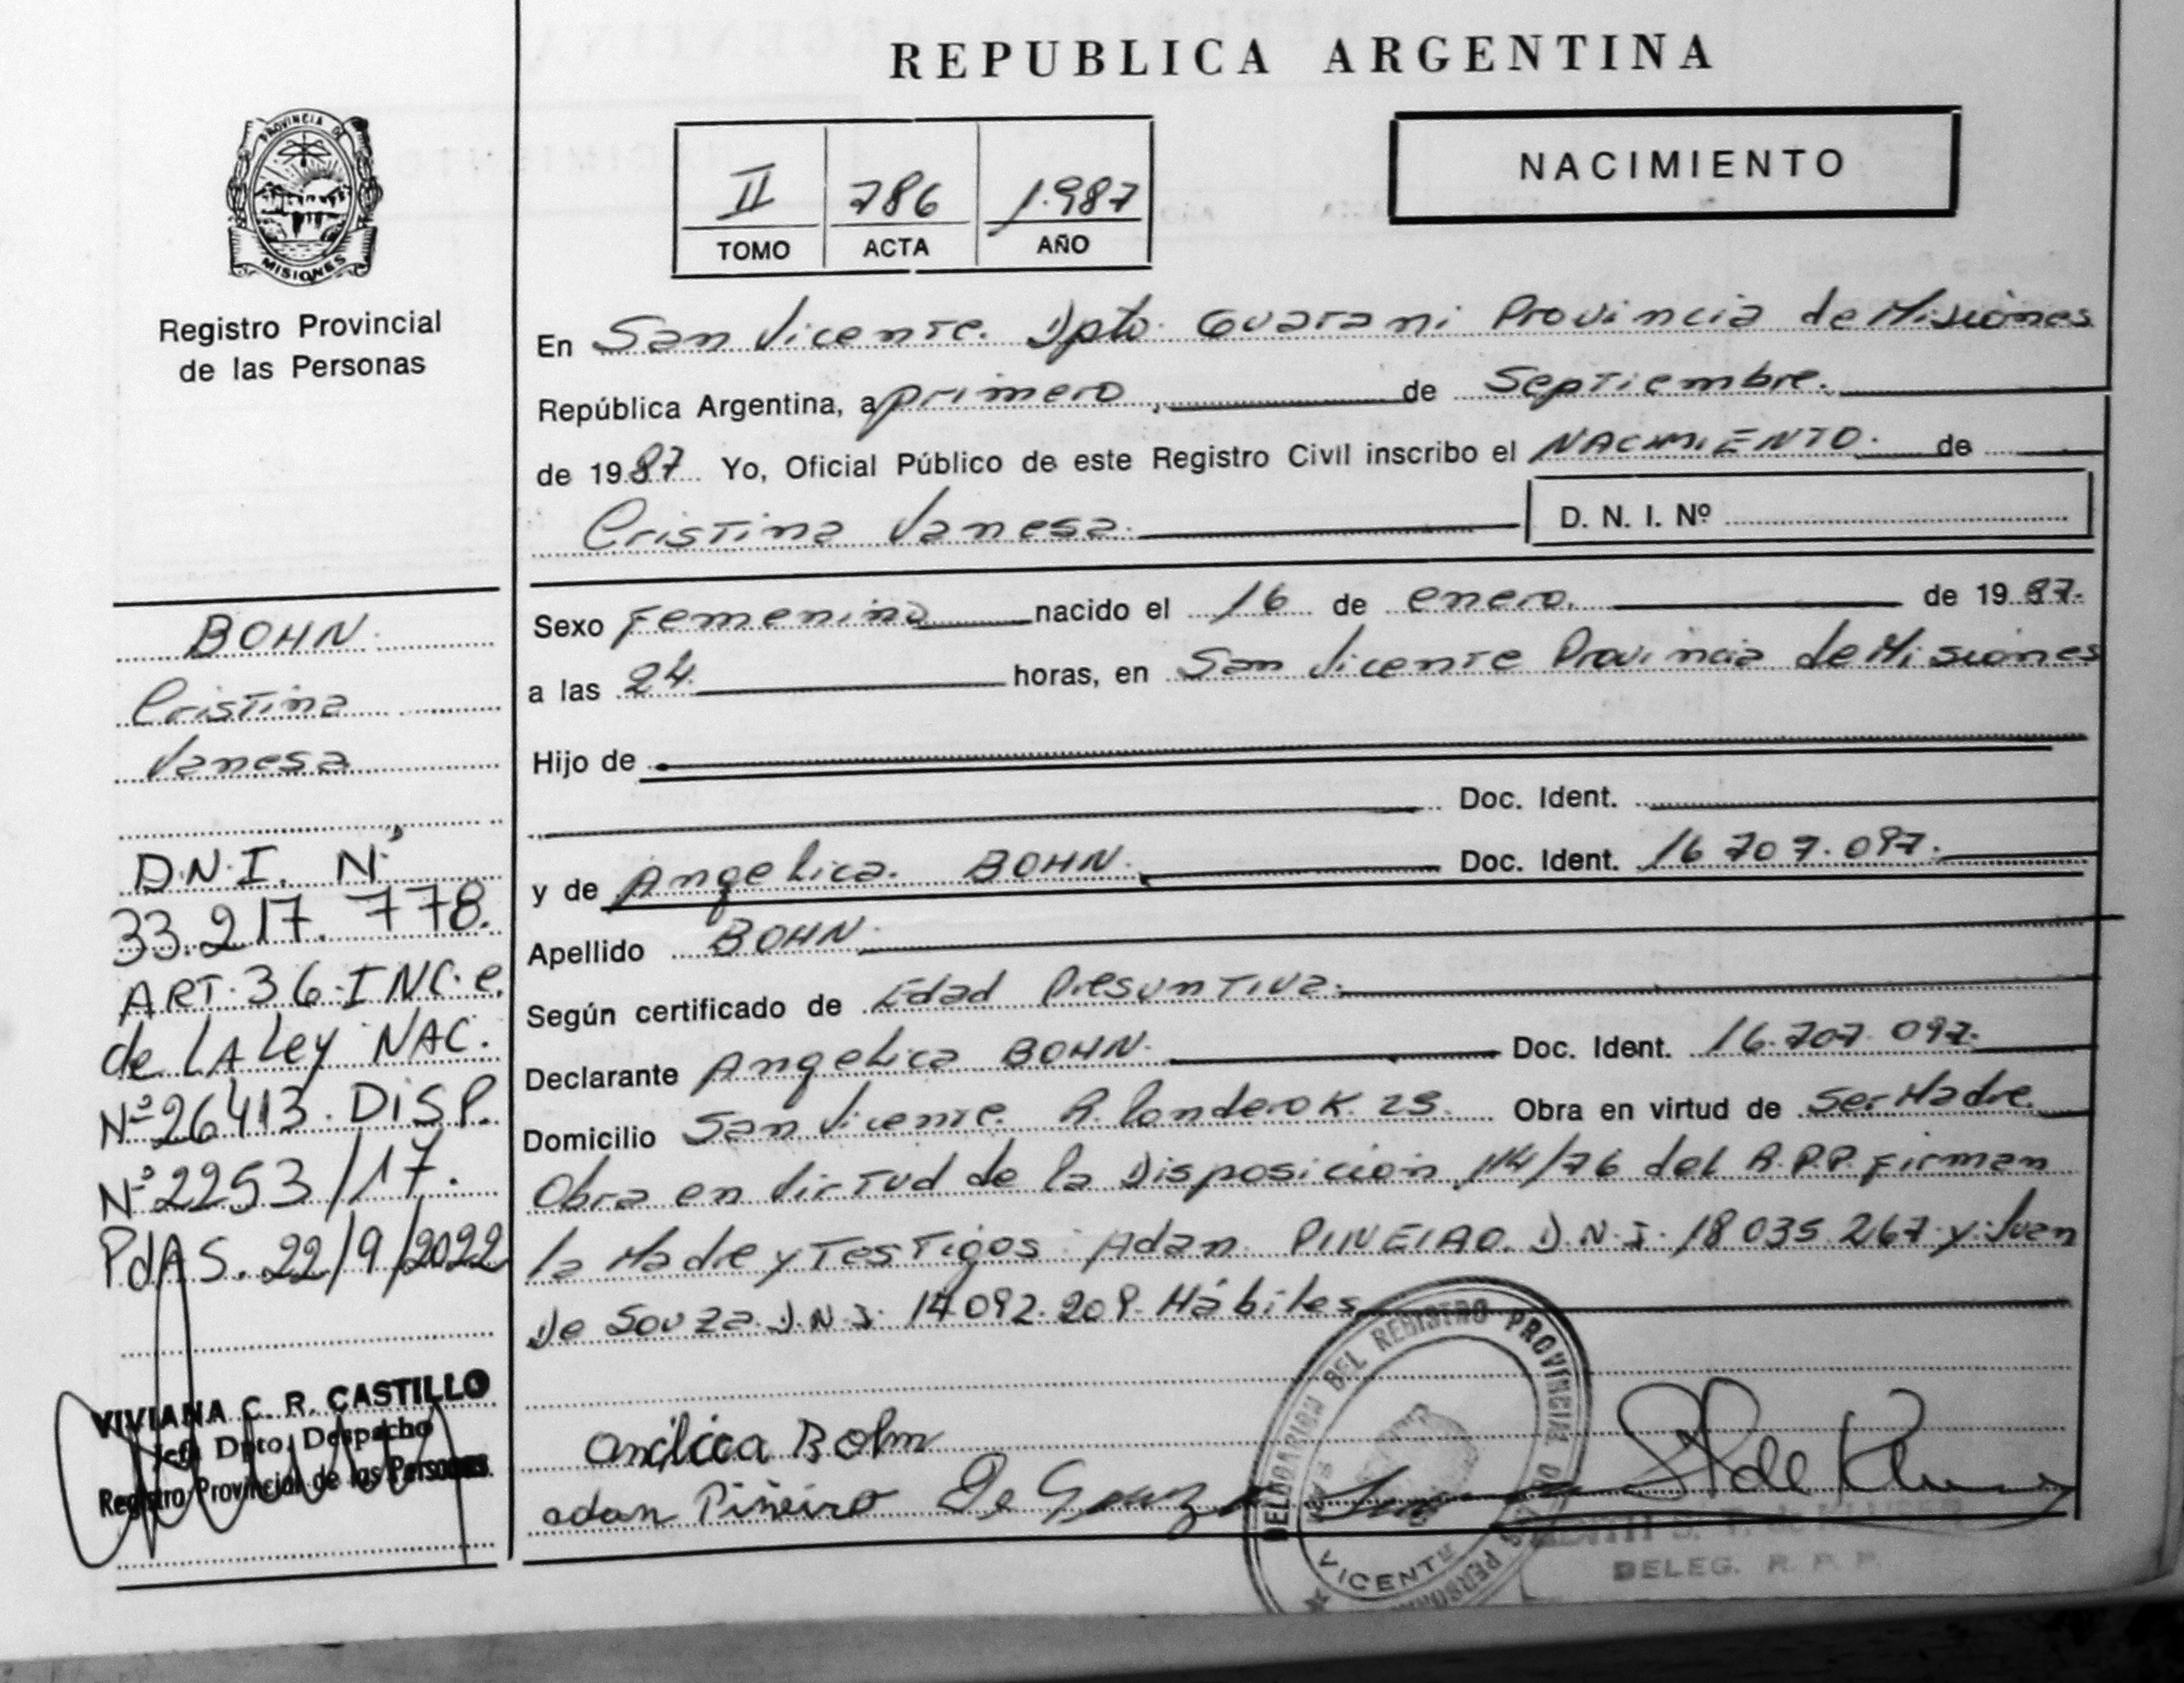 REPUBLICA ARGENTINA
PROVINCIA DE
MISIONES
Registro Provincial
de las Personas
II 786 1.987
TOMO ACTA AÑO
NACIMIENTO
En San Vicente. Dpto. Guarani Provincia de Misiones
República Argentina, a primero, de Septiembre.
de 1987 Yo, Oficial Público de este Registro Civil inscribo el NACIMIENTO. de
Cristina Vanesa.
D. N. I. Nº
Sexo Femenino nacido el 16 de enero. de 1987.
a las 24. horas, en San Vicente Provincia de Misiones
Hijo de
Doc. Ident.
y de Angelica. BOHN. Doc. Ident. 16 707.097.
Apellido BOHN.
Según certificado de Edad Presuntiva.
Declarante Angelica BOHN. Doc. Ident. 16.707.097.
Domicilio San Vicente. Obra en virtud de Ser Madre.
Obra en Virtud de la Disposición 114/76 del R.P.P. Firman
la Madre y Testigos: Adan PIÑEIRO. D.N.I. 18 035 267 y Juan
De Souza. D.N.I. 14 092.209. Hábiles
BOHN.
Cristina
Vanesa
D.N.I. Nº
33.217.778.
ART. 36-INC. e.
de LA Ley NAC.
Nº 26413. DISP.
Nº 2253/17.
PdAS. 22/9/2022
VIVIANA C. R. CASTILLO
Jefa Dpto. Despacho
Registro Provincial de las Personas
Bohn
adan Piñeiro De Souza
DELEGACION DEL REGISTRO PROVINCIAL DE LAS PERSONAS
VICENTE
BELEG. R. P. P.